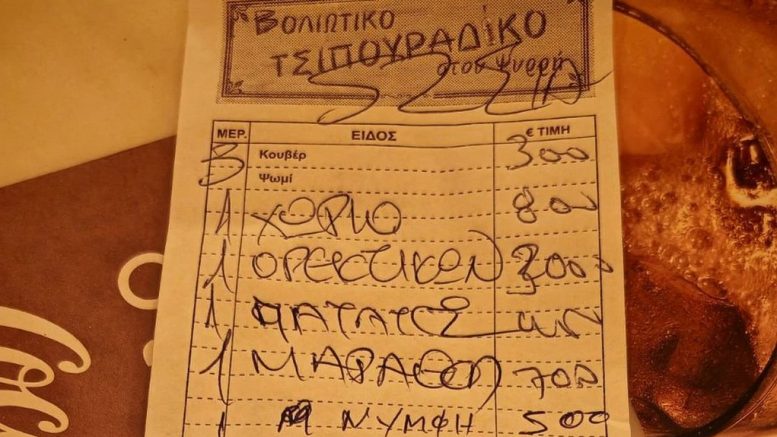 ΒΟΛΙΩΤΙΚΟ
ΤΣΙΠΟΥΡΑΔΙΚΟ
στου Ψυρρή
ΜΕΡ. ΕΙΔΟΣ € ΤΙΜΗ
3 Κουβέρ 300
Ψωμί
1 ΧΩΡΙΟ 800
1 ΟΡΕΚΤΙΚΩΝ
1 ΠΑΤΑΤΕΣ
1 ΜΑΡΑΘΟΠ 700
1 ΝΥΜΦΗ 500
Coc